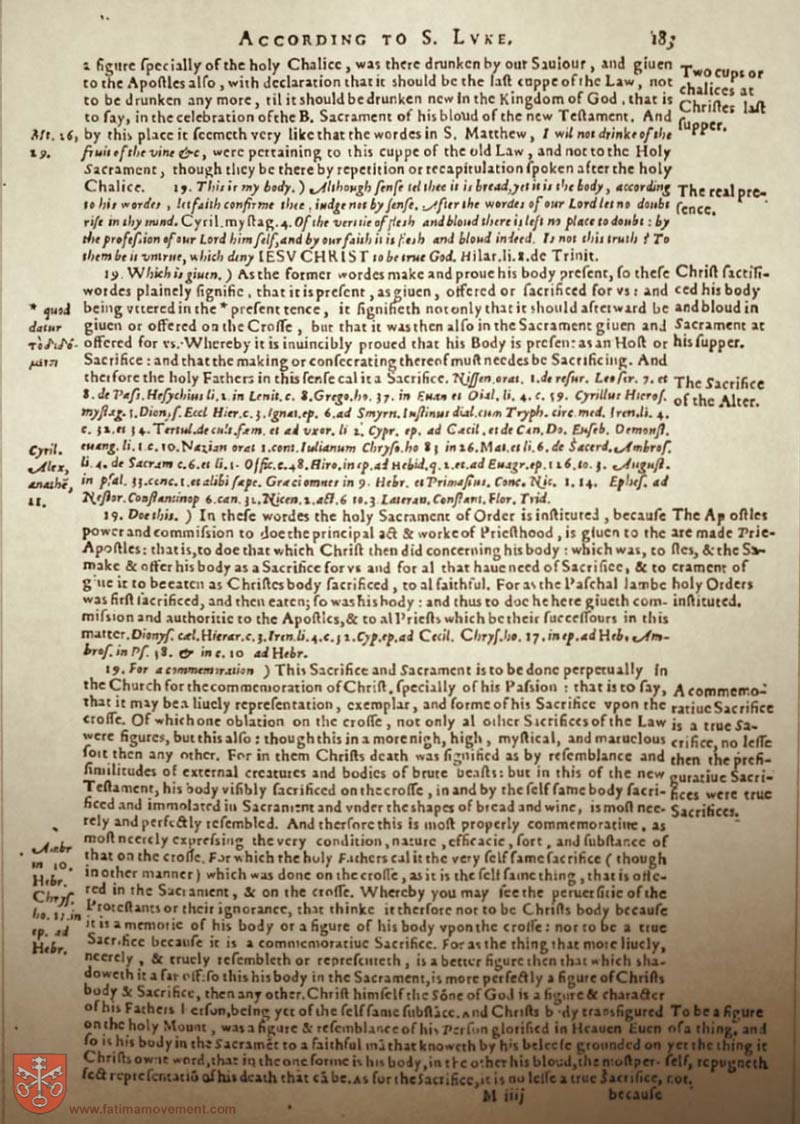 ACCORDING TO S. LVKE. 183
a figure ſpecially of the holy Chalice, was there drunken by our Sauiour, and giuen
to the Apoſtles alſo, with declaration that it ſhould be the laſt cuppe of the Law, not
to be drunken any more, til it ſhould be drunken new in the Kingdom of God, that is
to ſay, in the celebration of the B. Sacrament of his bloud of the new Teſtament. And
by this place it ſeemeth very like that the wordes in S. Matthew, I wil not drinke of the
fruit of the vine &c, were pertaining to this cuppe of the old Law, and not to the Holy
Sacrament, though they be there by repetition or recapitulation ſpoken after the holy
Chalice. 19. This is my body.) Although ſenſe tel thee it is bread, yet it is the body, according
to his wordes, let faith confirme thee, iudge not by ſenſe. After the wordes of our Lord let no doubt
riſe in thy mind. Cyril. myſtag. 4. Of the veritie of fleſh and bloud there is left no place to doubt: by
the profeſsion of our Lord him ſelf, and by our faith it is fleſh and bloud indeed. Is not this truth? To
them be it vntrue, which deny IESV CHRIST to be true God. Hilar. li. 8. de Trinit.
19. Which is giuen.) As the former wordes make and proue his body preſent, ſo theſe
wordes plainely ſignifie, that it is preſent, as giuen, offered or ſacrificed for vs: and
being vttered in the * preſent tence, it ſignifieth not only that it ſhould afterward be
giuen or offered on the Croſſe, but that it was then alſo in the Sacrament giuen and
offered for vs. Whereby it is inuincibly proued that his Body is preſen: as an Hoſt or
Sacrifice: and that the making or conſecrating thereof muſt needes be Sacrificing. And
therfore the holy Fathers in this ſenſe cal it a Sacrifice. Niſſen. orat. 1. de reſur. Leo ſer. 7. et
8. de Paſſ. Heſychius li. 2. in Leuit. c. 8. Grego. ho. 37. in Euan et Dial. li. 4. c. 59. Cyrillus Hieroſ.
myſtag. 5. Dionyſ. Eccl Hier. c. 3. Ignat. ep. 6. ad Smyrn. Iuſtinus dial. cum Tryph. circ. med. Iren. li. 4.
c. 32. et 34. Tertul. de cult. fæm. et ad vxor. li 2. Cypr. ep. ad Cecil. et de Cæn. Do. Euſeb. Demonſt.
euang. li. 1 c. 10. Nazian orat 1. cont. Iulianum Chryſo. ho 83 in 26. Mat. et li. 6. de Sacerd. Ambroſ.
li. 4. de Sacram c. 6. et li. 1. Offic. c. 48. Hiro. in ep. ad Hebid. q. 2. et. ad Euagr. ep. 126. to. 3. Auguſt.
in pſal. 33. conc. 1. et alibi ſæpe. Græci omnes in 9. Hebr. et Primaſius. Conc. Nic. 1. 14. Epheſ. ad
Neſtor. Conſtantinop 6. can. 32. Nicen. 2. act. 6 to. 3. Lateran. Conſtant. Flor. Trid.
19. Doe this.) In theſe wordes the holy Sacrament of Order is inſtituted, becauſe
power and commiſsion to doe the principal act & worke of Prieſthood, is giuen to the
Apoſtles: that is, to doe that which Chriſt then did concerning his body: which was, to
make & offer his body as a Sacrifice for vs and for al that haue need of Sacrifice, & to
giue it to be eaten as Chriſtes body ſacrificed, to al faithful. For as the Paſchal lambe
was firſt ſacrificed, and then eaten; ſo was his body: and thus to doe he here giueth com-
miſsion and authoritie to the Apoſtles, & to al Prieſts which be their ſucceſſours in this
matter. Dionyſ. cæl. Hierar. c. 3. Iren. li. 4. c. 32. Cyp. ep. ad Cecil. Chryſ. ho. 17. in ep. ad Heb. Am-
broſ. in Pſ. 38. & in c. 10 ad Hebr.
19. For a commemoration) This Sacrifice and Sacrament is to be done perpetually in
the Church for the commemoration of Chriſt, ſpecially of his Paſsion: that is to ſay,
that it may be a liuely repreſentation, exemplar, and forme of his Sacrifice vpon the
croſſe. Of which one oblation on the croſſe, not only al other Sacrifices of the Law
were figures, but this alſo: though this in a more nigh, high, myſtical, and maruelous
ſort then any other. For in them Chriſts death was ſignified as by reſemblance and
ſimilitudes of external creatures and bodies of brute beaſts: but in this of the new
Teſtament, his body viſibly ſacrificed on the croſſe, in and by the ſelf ſame body ſacri-
ficed and immolated in Sacrament and vnder the shapes of bread and wine, is moſt nee-
rely and perfectly reſembled. And therfore this is moſt properly commemoratiue, as
moſt neerely expreſsing the very condition, nature, efficacie, ſort, and ſubſtance of
that on the croſſe. For which the holy Fathers cal it the very ſelf ſame ſacrifice (though
in other manner) which was done on the croſſe, as it is the ſelf ſame thing, that is offe-
red in the Sacrament, & on the croſſe. Whereby you may ſee the peruerſitie of the
Proteſtants or their ignorance, that thinke it therfore not to be Chriſts body becauſe
it is a memorie of his body or a figure of his body vpon the croſſe: nor to be a true
Sacrifice becauſe it is a commemoratiue Sacrifice. For as the thing that more liuely,
neerely, & truely reſembleth or repreſenteth, is a better figure then that which sha-
doweth it a far off: ſo this his body in the Sacrament, is more perfectly a figure of Chriſts
body & Sacrifice, then any other. Chriſt himſelf the Sōne of God is a figure & character
of his Fathers Perſon, being yet of the ſelf ſame ſubſtāce. And Chriſts body tranſfigured
on the holy Mount, was a figure & reſemblance of his Perſon glorified in Heauen Euen
ſo is his body in the Sacramēt to a faithful mā that knoweth by his beleefe grounded on
Chriſts owne word, that in the one forme is his body, in the other his bloud, the moſt per-
fect repreſentatiō of his death that cā be. As for the Sacrifice, it is no leſſe a true Sacrifice,
M iiij because
Mt. 26,
29.
* quod
datur
τὸ διδό-
μενον
Cyril.
Alex,
anathē,
11.
Ambr
in 10.
Hebr.
Chryſ.
ho. 17. in
ep. ad
Hebr.
Two cups or
chalices at
Chriſtes laſt
ſupper.
The real pre-
ſence.
Chriſt ſacrifi-
ced his body
and bloud in
Sacrament at
his ſupper.
The Sacrifice
of the Alter.
The Apoſtles
are made Prie-
ſtes, & the Sa-
crament of
holy Orders
inſtituted.
A commemo-
ratiue Sacrifice
is a true Sa-
crifice, no leſſe
then the prefi-
guratiue Sacri-
fices were true
Sacrifices.
To be a figure
of a thing, and
yet the thing it
ſelf, repugneth
not.
www.fatimamovement.com